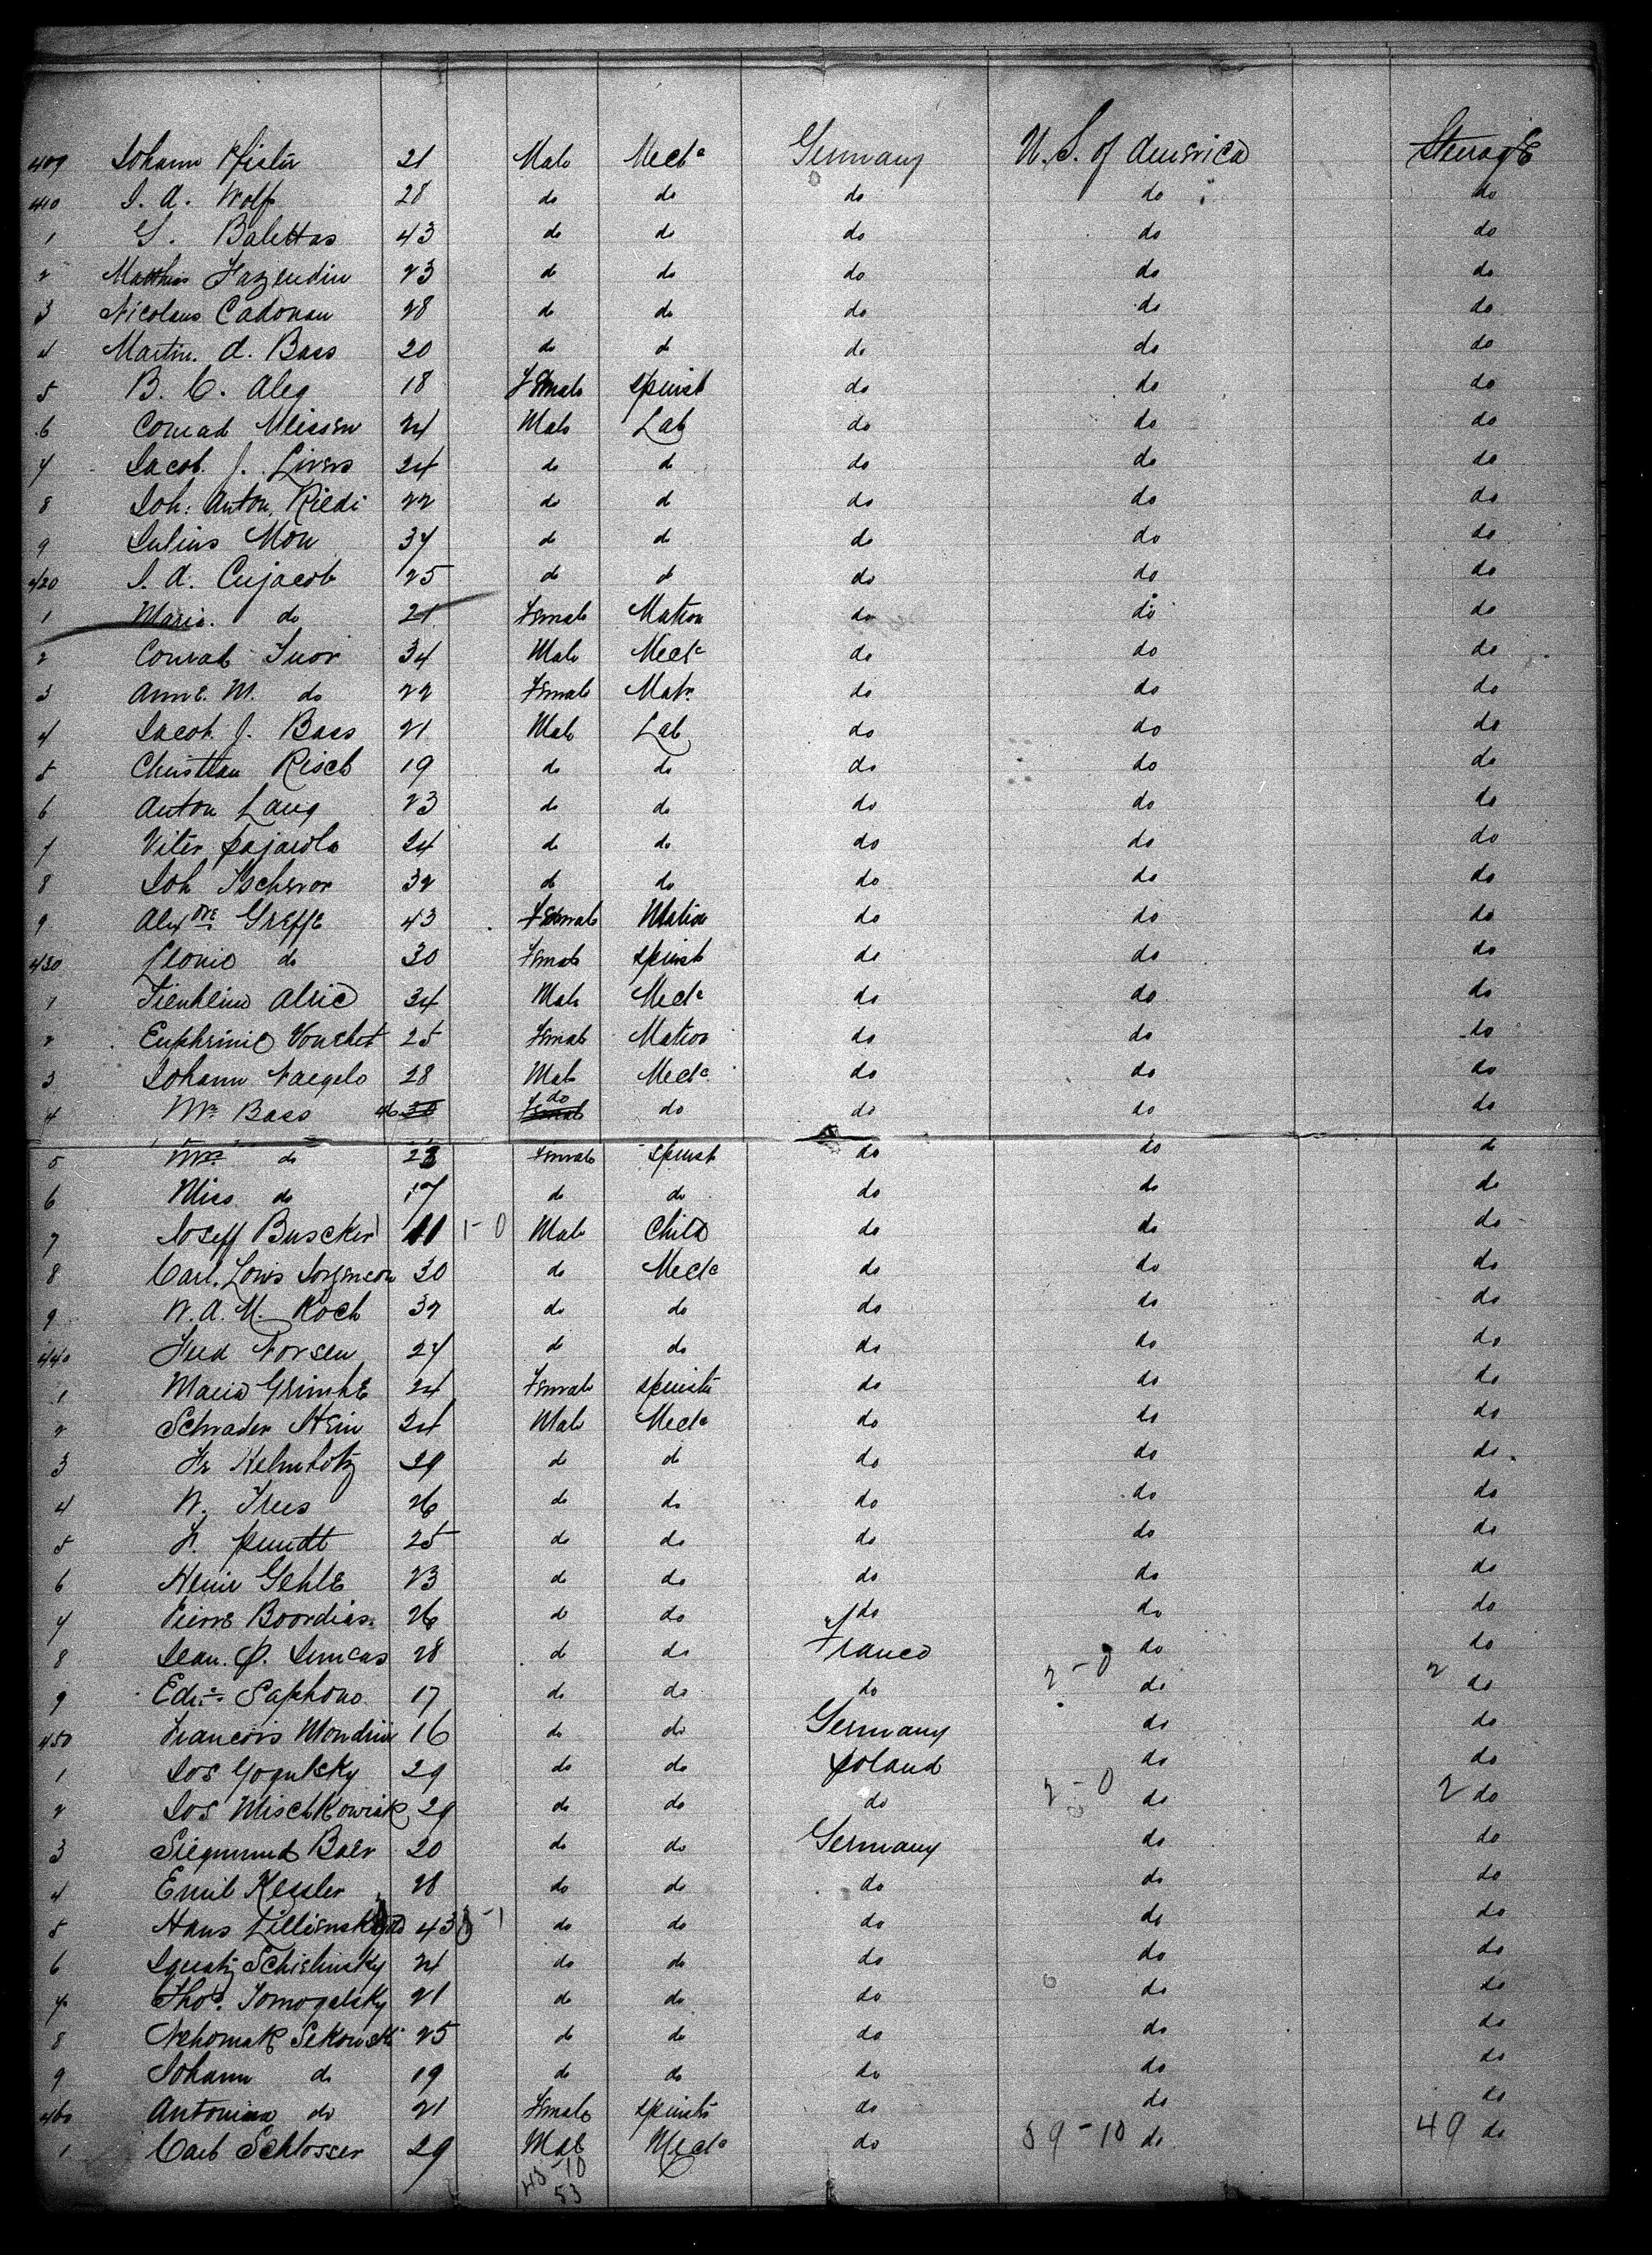 409 Johann Pfister 21 Male Mech^c Germany U. S. of America Steerage
410 J. A. Wolf 28 do do do do do
1 S. Balettas 43 do do do do do
2 Matthias Fazendin 23 do do do do do
3 Nicolaus Cadonau 28 do do do do do
4 Martin. A. Bass 20 do do do do do
5 B. C. Aleg 18 Female Spinst do do do
6 Conrad Meissen 24 Male Lab do do do
7 Jacob. J. Livers 24 do do do do do
8 Joh: Anton. Riedi 22 do do do do do
9 Julius Mon 37 do do do do do
420 J. A. Cujacob 25 do do do do do
1 Maria. do 21 Female Matron do do do
2 Conrad Juor 34 Male Mech^c do do do
3 Anne. M. do 22 Female Matr. do do do
4 Jacob J. Bass 21 Male Lab do do do
5 Christian Risch 19 do do do do do
6 Anton Lang 23 do do do do do
7 Viter Pajarola 24 do do do do do
8 Joh Tscheror 32 do do do do do
9 Alex^dre Greffe 43 Female Matron do do do
430 Leonie do 30 Female Spinst do do do
1 Alric 34 Male Mech^c do do do
2 Euphrinie Vouchet 25 Female Matron do do do
3 Johann Naegele 28 Male Mech^c do do do
4 Mr. Bass 46 do do do do do
5 Mrs do 23 Female Spinst do do do
6 Miss do 17 do do do do do
7 Joseff Buscker 11 1-0 Male Child do do do
8 Carl. Louis Jorgenson 30 do Mech^c do do do
9 W. A. M. Koch 32 do do do do do
440 Fred Norsen 27 do do do do do
1 Maria Grimke 24 Female Spinstr do do do
2 Schrader Hein 24 Male Mech^c do do do
3 Fr Helmholtz 29 do do do do do
4 W. Frees 26 do do do do do
5 H. Pundt 25 do do do do do
6 Heinr Gehle 23 do do do do do
7 Pierre Boordias. 26 do do do do do
8 Jean. P. Dumcas 28 do do France do do
9 Edr. Saphono 17 do do do 2-0 do 2 do
450 Francois Mondrin 16 do do Germany do do
1 Jos Gogulsky 29 do do Poland do do
2 Jos Mischkowiak 29 do do do 2-0 do 2 do
3 Siegmund Baer 20 do do Germany do do
4 Emil Kessler 28 do do do do do
5 Hans 43 do do do do do
6 Ignatz Schielinsky 24 do do do do do
7 Thos. Tomogalsky 21 do do do do do
8 Nehomak Sekowski 25 do do do do do
9 Johann do 19 do do do do do
460 Antonina do 21 Female Spinstr do do do
1 Carl Schlosser 29 Male Mech^c do 39-10 do 49 do
43-10
53